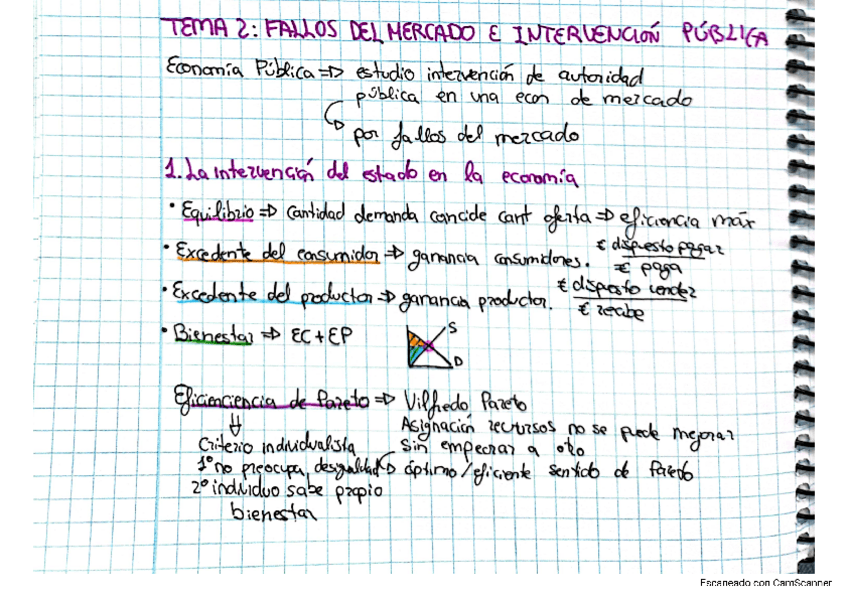 TEMA 2: FALLOS DEL MERCADO E INTERVENCIÓN PÚBLICA
Economía Pública => estudio intervención de autoridad
pública en una econ de mercado
por fallos del mercado
1. La intervención del estado en la economía
• Equilibrio => Cantidad demanda concide cant oferta => eficiencia máx
• Excedente del consumidor => ganancia consumidores. € dispuesto pagar
€ paga
• Excedente del productor => ganancia productor. € dispuesto vender
€ recibe
• Bienestar => EC + EP
S
D
Eficienciencia de Pareto => Vilfredo Pareto
Asignación recursos no se puede mejorar
Criterio individualista sin empeorar a otro
1º no preocupa desigualdad óptimo/eficiente sentido de Pareto
2º individuo sabe propio
bienestar
Escaneado con CamScanner